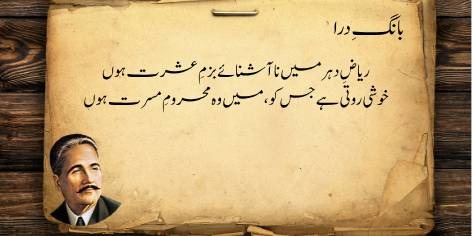 بانگِ درا
ریاضِ دہر میں ناآشنائے بزمِ عشرت ہوں
خوشی روتی ہے جس کو، میں وہ محرومِ مسرت ہوں